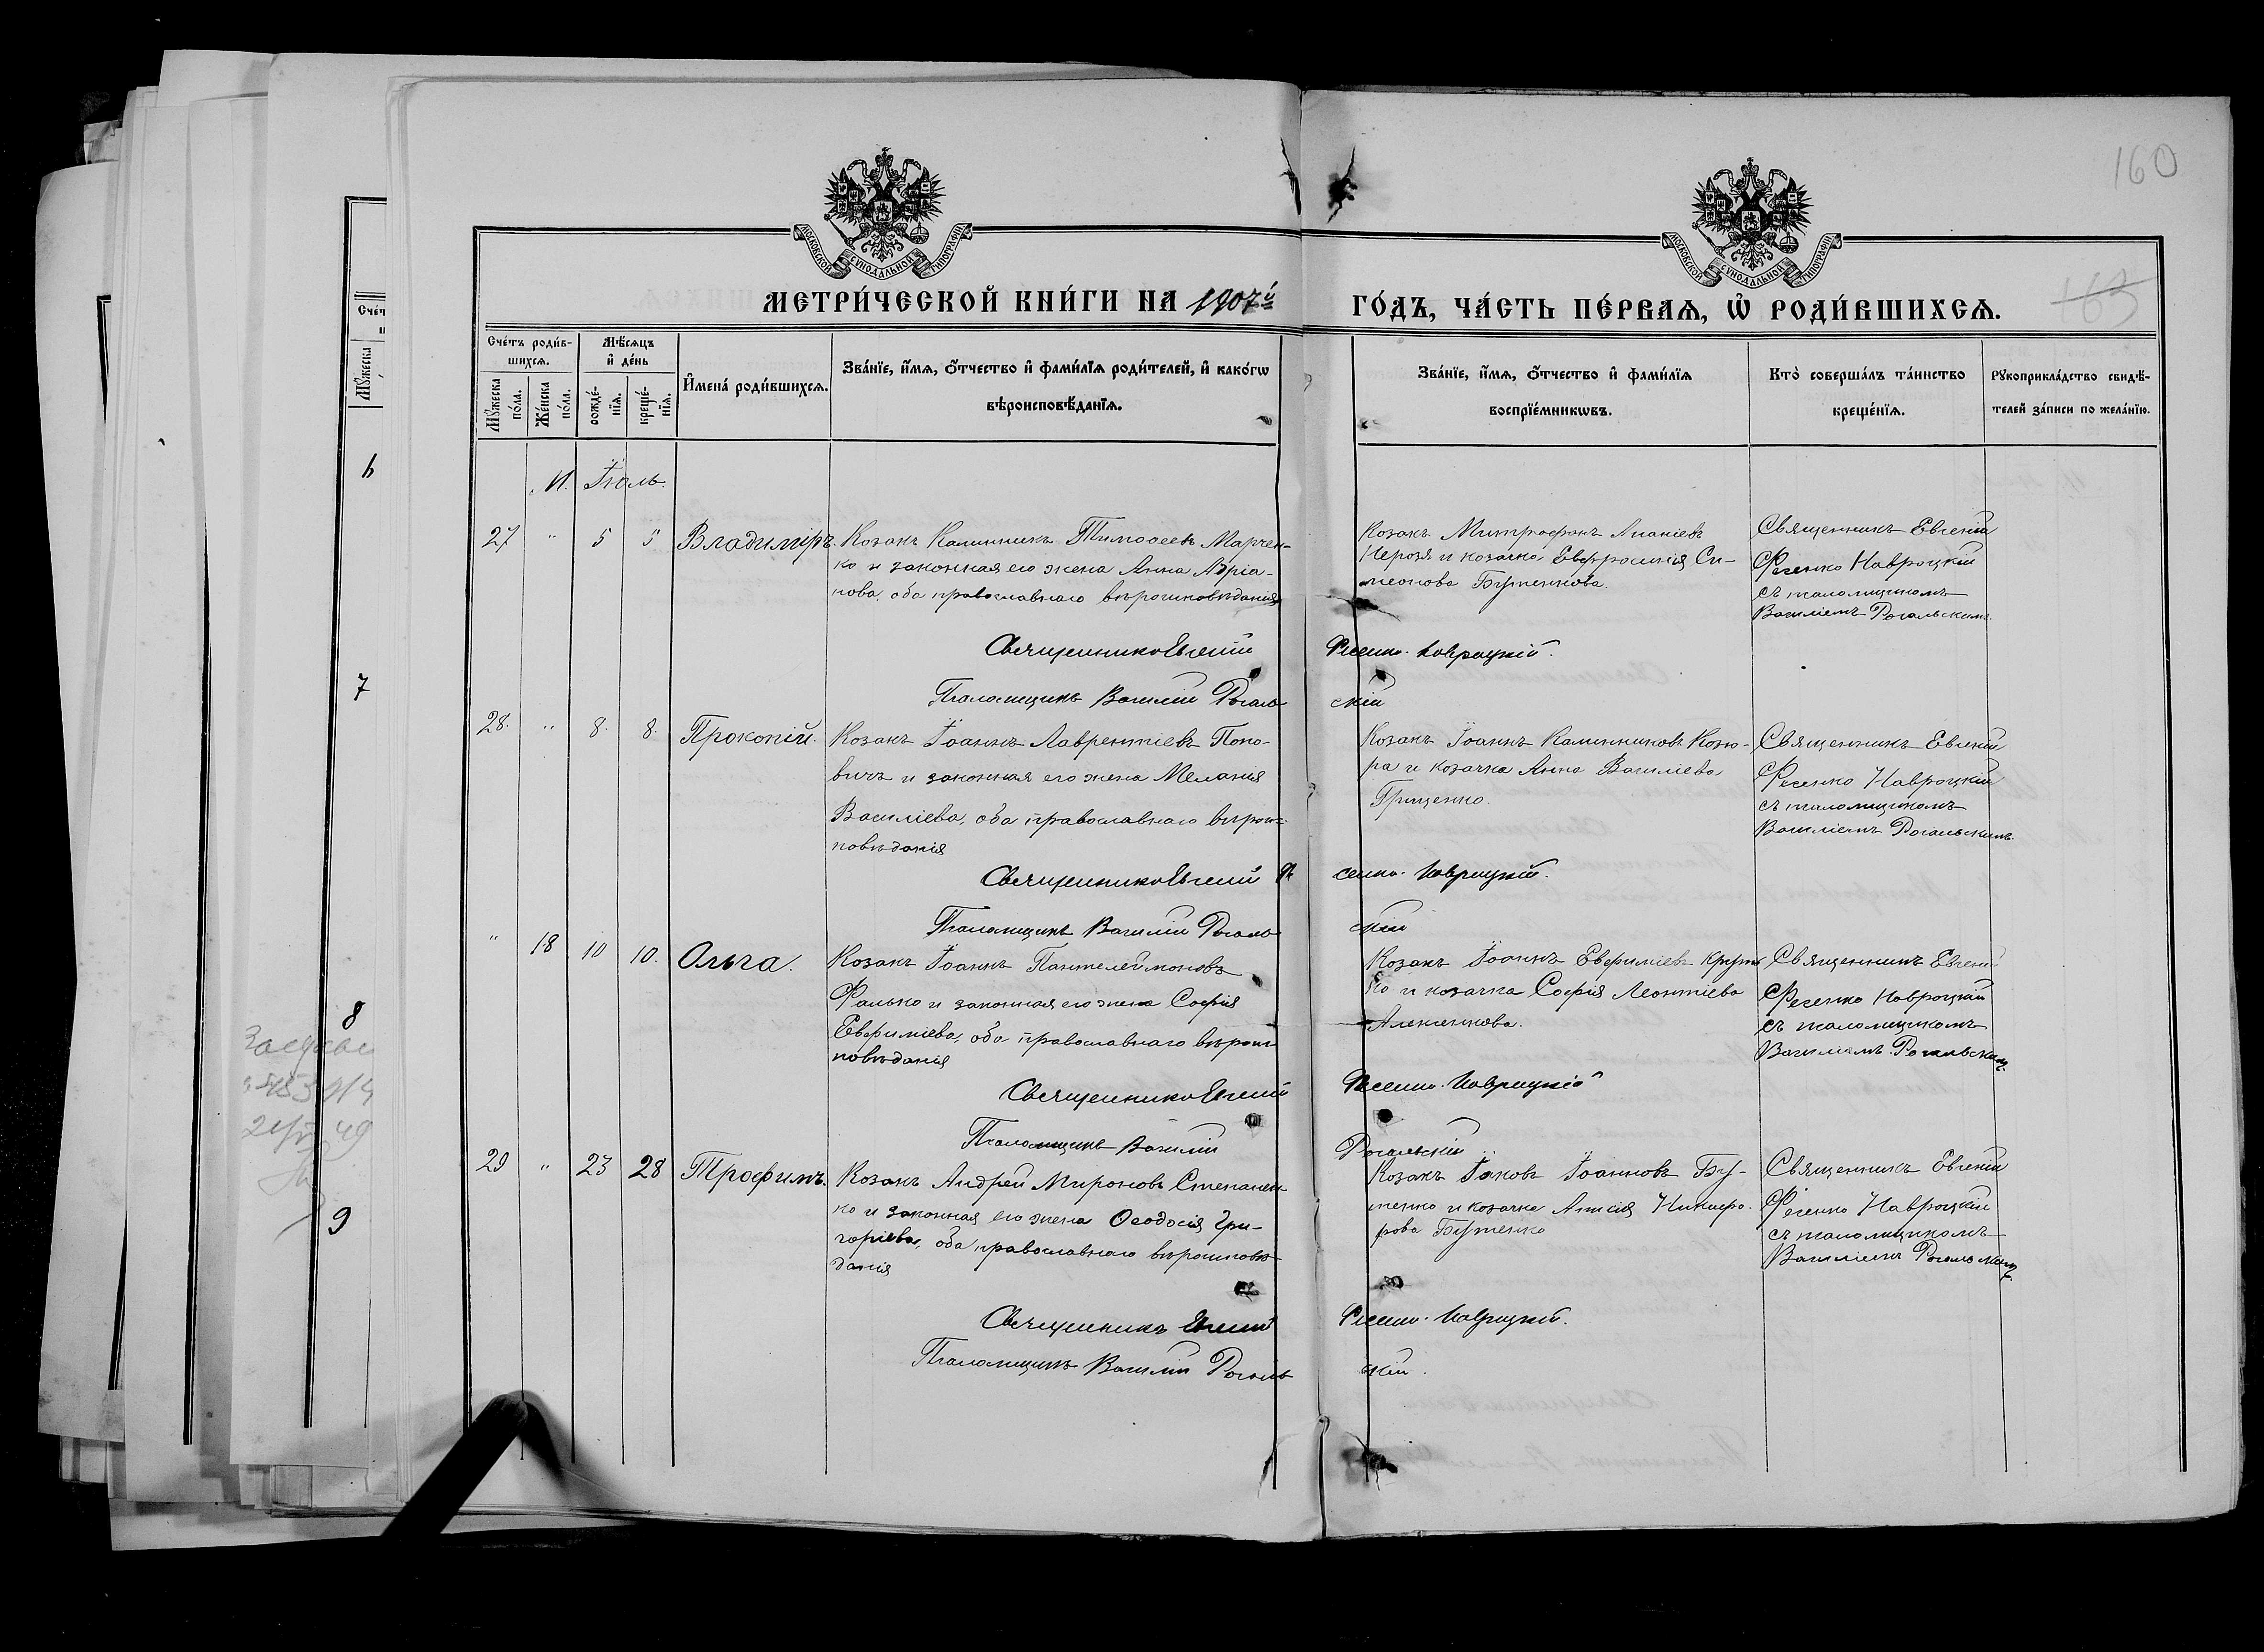 160
163
МОСКОВСКОЙ СУНОДАЛЬНОЙ ТИПОГРАФІИ
МОСКОВСКОЙ СУНОДАЛЬНОЙ ТИПОГРАФІИ
МЕТРИ́ЧЕСКОЙ КНИ́ГИ НА 1907й ГО́ДЪ, ЧА́СТЬ ПЕ́РВАѦ, Ѡ҆ РОДИ́ВШИХСѦ.
Сче́тъ роди́в-
шихся.
Мꙋ́жеска по́ла.
Же́нска по́ла.
Мѣ́сяцъ
и҆ де́нь
рожде́-
нїя.
креще́-
нїя.
И҆мена́ роди́вшихся.
Зва́нїе, и҆́мя, ѻ҆́тчество и҆ фами́лїя роди́телей, и҆ како́гѡ
вѣроисповѣ́данїя.
Зва́нїе, и҆́мя, ѻ҆́тчество и҆ фами́лїя
воспрїе́мникѡвъ.
Кто̀ соверша́лъ та́инство
креще́нїя.
Рꙋкоприкла́дство свидѣ́-
телей за́писи по жела́нїю.
Іюль.
27 " 5 5 Владиміръ.
Козакъ Калинникъ Тимоѳеевъ Марчен-
ко и законная его жена Анна Адріа-
нова, оба православнаго вѣроисповѣданія
Козакъ Митрофанъ Ананіевъ
и козачка Евфросинія Си-
меонова Бутенкова
Священникъ Евгеній
Фесенко Навроцкій
съ псаломщикомъ
Василіемъ Рогальскимъ.
Священникъ Евгеній Фесенко-Навроцкій.
Псаломщикъ Василій Рогальскій
28. " 8. 8. Прокопій.
Козакъ Іоаннъ Лаврентіевъ Попо-
вичъ и законная его жена Меланія
Василіева, оба православнаго вѣроис-
повѣданія
Козакъ Іоаннъ Калинниковъ Козю-
ра и козачка Анна Василіева
Грищенко.
Священникъ Евгеній
Фесенко Навроцкій
съ псаломщикомъ
Василіемъ Рогальскимъ.
Священникъ Евгеній Фесенко-Навроцкій.
Псаломщикъ Василій Рогальскій
" 18 10 10. Ольга.
Козакъ Іоаннъ Пантелеймоновъ
Фалько и законная его жена Софія
Евфиміева, оба православнаго вѣроис-
повѣданія
Козакъ Іоаннъ Евфиміевъ
и козачка Софія Леонтіева
Алексенкова.
Священникъ Евгеній
Фесенко Навроцкій
съ псаломщикомъ
Василіемъ Рогальскимъ.
Священникъ Евгеній Фесенко-Навроцкій
Псаломщикъ Василій Рогальскій
29 " 23 28 Трофимъ.
Козакъ Андрей Мироновъ Степанен-
ко и законная его жена Ѳеодосія Гри-
горіева, оба православнаго вѣроисповѣ-
данія
Козакъ Іаковъ Іоанновъ Бу-
тенко и козачка Анисія Никифо-
рова Бутенко
Священникъ Евгеній
Фесенко Навроцкій
съ псаломщикомъ
Василіемъ Рогальскимъ.
Священникъ Евгеній Фесенко-Навроцкій.
Псаломщикъ Василій Рогальскій.
6
7
8
9